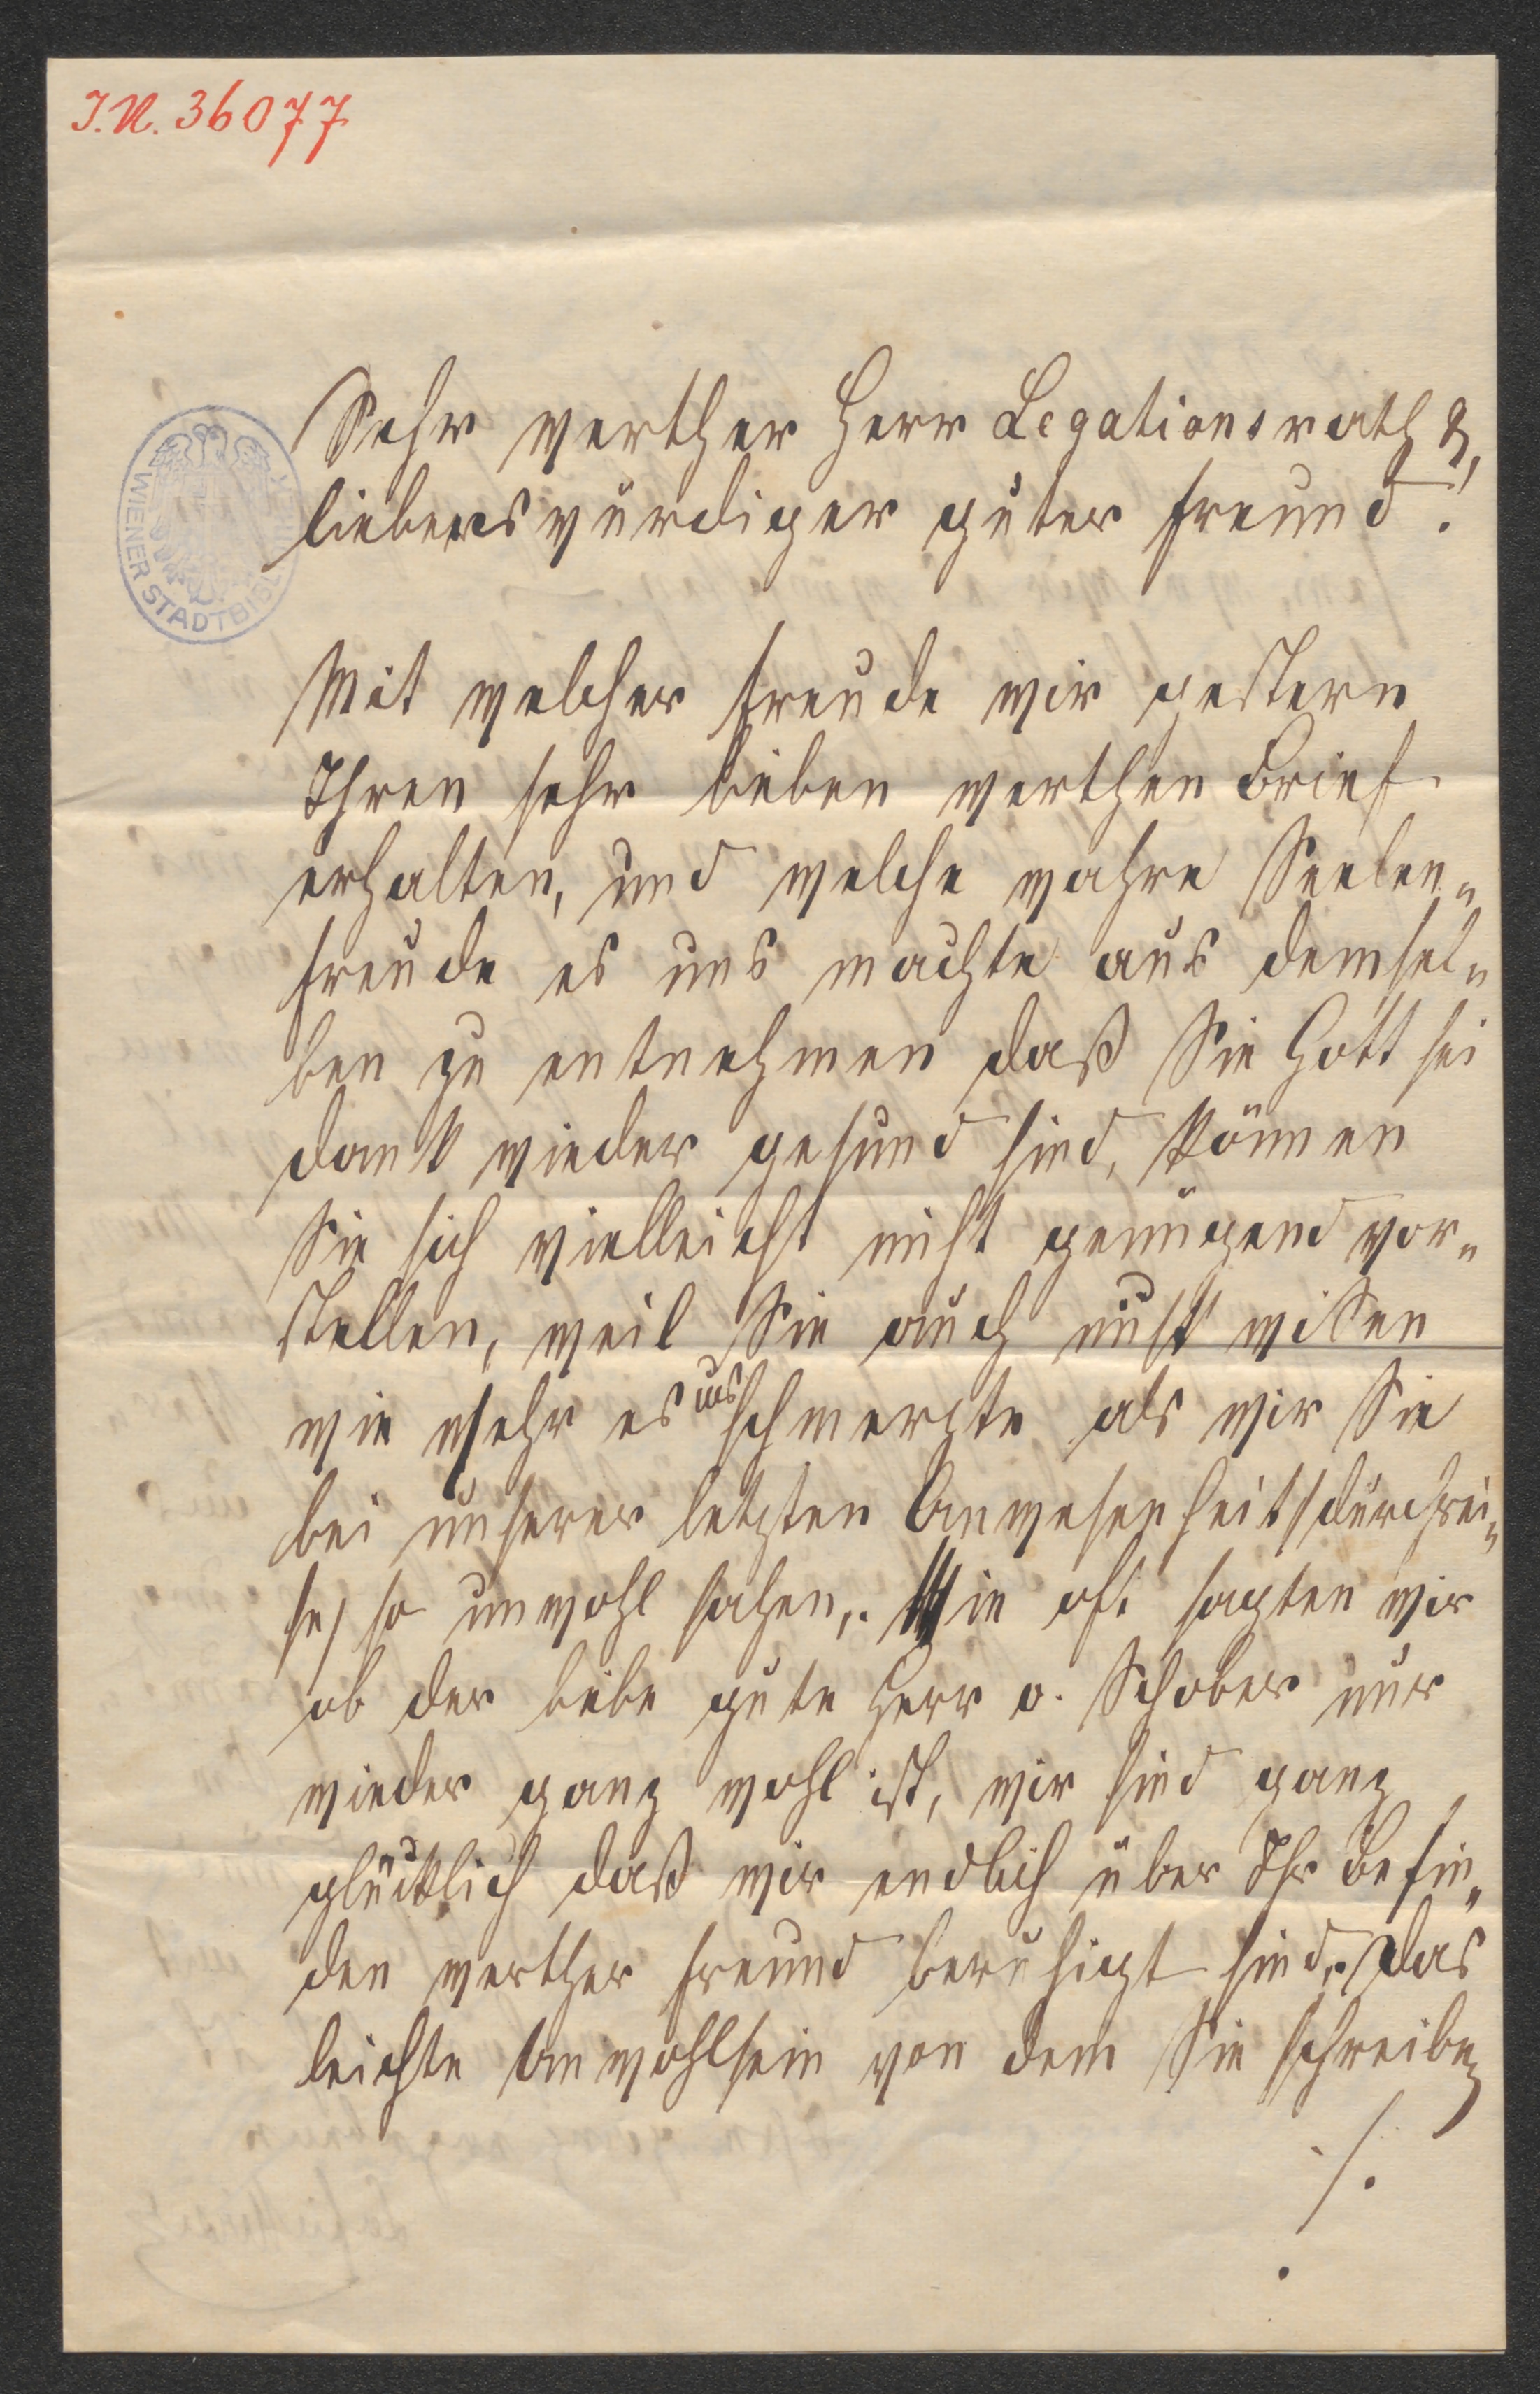 I.N. 36077
WIENER STADTBIBL
Sehr werther Herr Legationsrath &,
liebenswürdiger guter Freund!
Mit welcher Freude wir gestern
Ihren sehr lieben werthen Brief
erhalten, und welche wahre Seelen„
freude es uns machte aus demsel„
ben zu entnehmen daß Sie Gott sei
dank wieder gesund sind, können
Sie sich vielleicht nicht genügend vor„
stellen, weil Sie auch nicht wißen
wie sehr es uns schmerzte als wir Sie
bei unserer letzten Anwesenheit /durchrei„
se/ so unwohl sahen,. Wie oft sagten wir
ob der liebe gute Herr v. Schober nur
wieder ganz wohl ist, wir sind ganz
glücklich daß wir endlich über Ihr Befin„
den werther Freund beruhigt sind,. Das
leichte Unwohlsein von dem Sie schreiben
./.